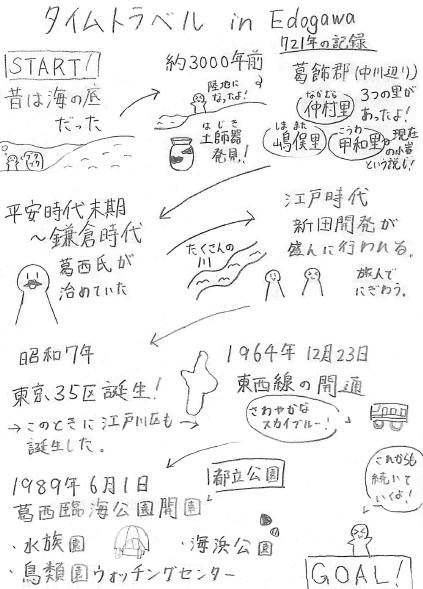 タイムトラベル in Edogawa
START!
昔は海の底
だった
約3000年前
陸地に
なったよ!
はじき
土師器
発見!!
721年の記録
葛飾郡(中川辺り)
なかむら
仲村里
3つの里が
あったよ!
しままた
嶋俣里
こうわ
甲和里
現在
の小岩
という説も!
平安時代末期
〜鎌倉時代
葛西氏が
治めていた
たくさんの
川
江戸時代
新田開発が
盛んに行われる。
旅人で
にぎわう。
昭和7年
東京35区誕生!
→このときに江戸川区も
誕生した。
1964年12月23日
東西線の開通
さわやかな
スカイブルー!
1989年6月1日
葛西臨海公園開園
都立公園
・水族園
・海浜公園
・鳥類園ウォッチングセンター
これからも
続いて
いくよ!
GOAL!